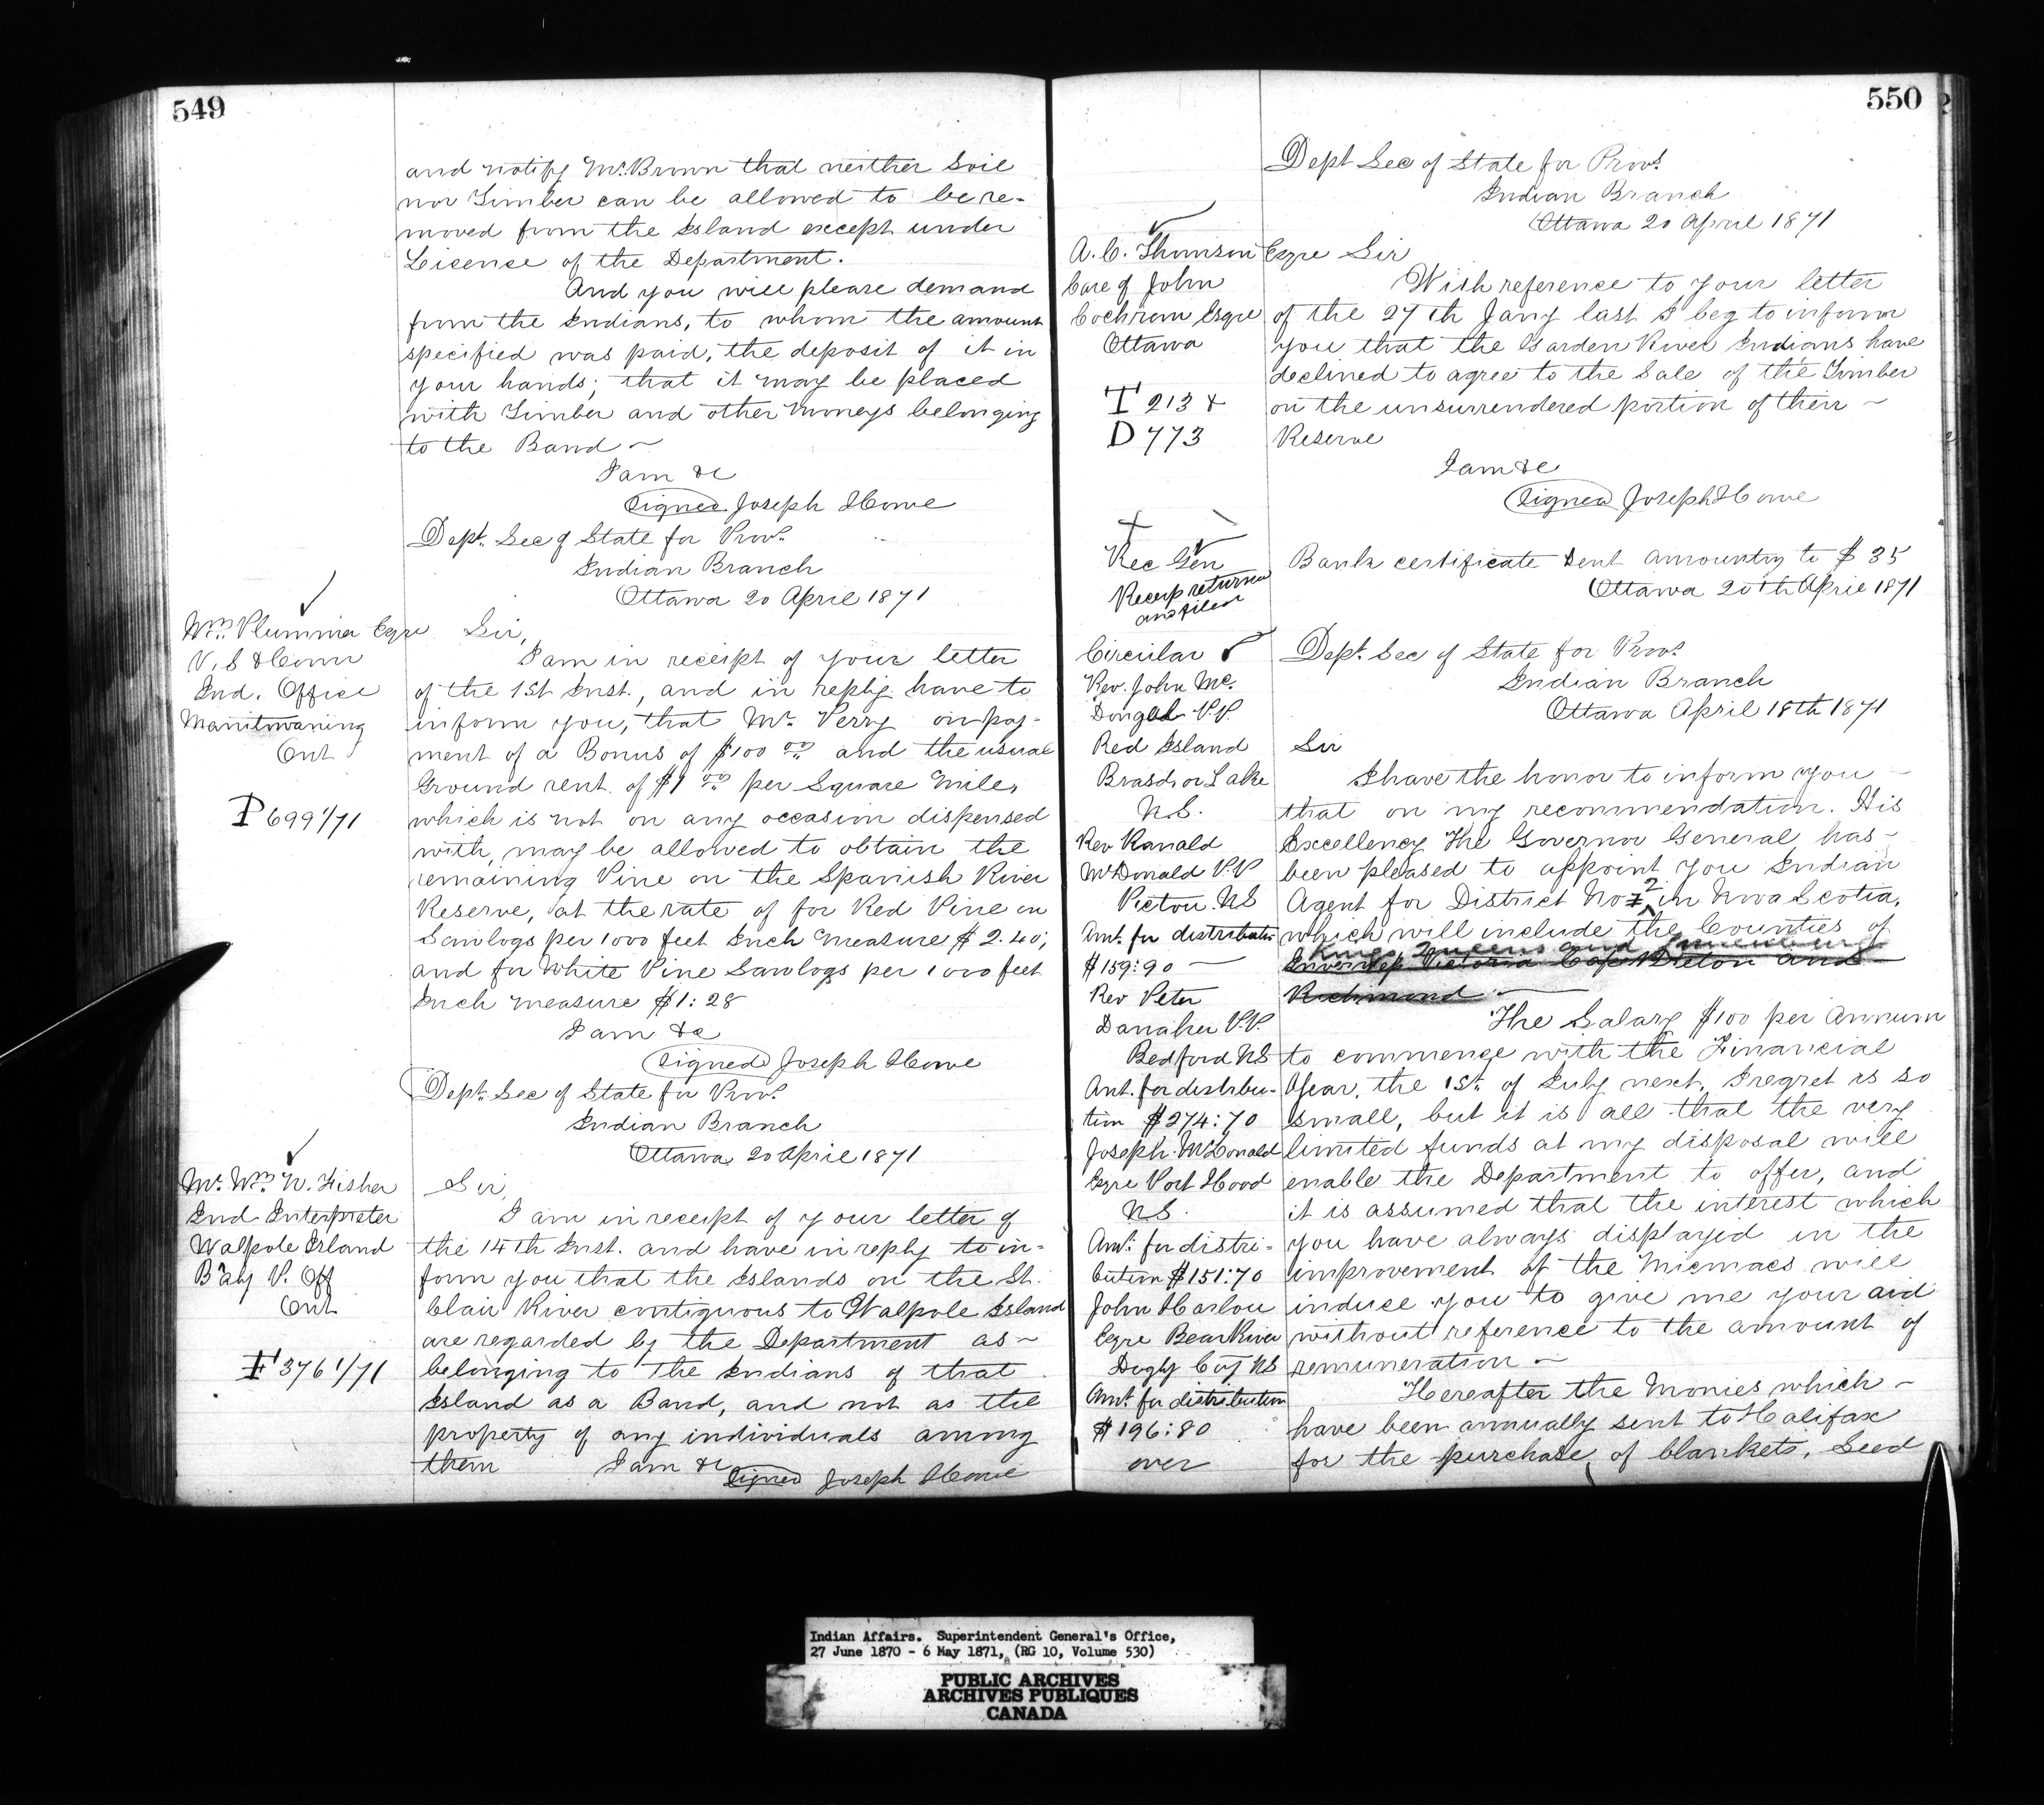 549
and notify Mr. Brown that neither Soil
nor Timber can be allowed to be re-
moved from the Island except under
License of the Department.
And you will please demand
from the Indians, to whom the amount
specified was paid, the deposit of it in
your hands; that it may be placed
with Timber and other Moneys belonging
to the Band ~
I am &c
Signed Joseph Howe
Dept. Sec of State for Provs.
Indian Branch
Ottawa 20 April 1871
Wm. Plummer Esqre
V. S & Comr
Ind. Office
Manitowaning
Ont
P 699 1/71
Sir,
I am in receipt of your letter
of the 1st Inst., and in reply have to
inform you, that Mr. Perry on pay-
ment of a Bonus of $100 00 and the usual
Ground rent of $1 00 per Square Mile,
which is not on any occasion dispensed
with, may be allowed to obtain the
remaining Pine on the Spanish River
Reserve, at the rate of for Red Pine in
Sawlogs per 1000 feet Inch Measure $2.40;
and for White Pine Sawlogs per 1000 feet
Inch Measure $1:28
I am &c
Signed Joseph Howe
Dept. Sec of State for Provs.
Indian Branch
Ottawa 20 April 1871
Mr. Wm. N. Fisher
Ind Interpreter
Walpole Island
Baby P. Off
Ont
F 376 1/71
Sir,
I am in receipt of your letter of
the 14th Inst. and have in reply to in-
form you that the Islands on the St.
Clair River contiguous to Walpole Island
are regarded by the Department as ~
belonging to the Indians of that
Island as a Band, and not as the
property of any individuals among
them I am &c Signed Joseph Howe
550
Dept Sec of State for Provs.
Indian Branch
Ottawa 20 April 1871
A. C. Thomson Esqre
Care of John
Cochran Esqre
Ottawa
T 213 &
D 773
Sir
With reference to your letter
of the 27th Jany last I beg to inform
you that the Garden River Indians have
declined to agree to the Sale of the Timber
on the unsurrendered portion of their ~
Reserve
I am &c
Signed Joseph Howe
Rec Gen
Receip returned
and filed
Bank certificate Sent amounting to $35
Ottawa 20th April 1871
Circular
Rev. John Mc.
Dougal P.P.
Red Island
Brasd, or Lake
N.S.
Rev Ranald
McDonald P.P
Pictou. NS
Amt. for distributn
$159:90 —
Rev Peter
Danaher P.P.
Bedford NS
Amt. for distribu-
tion $274:70
Joseph McDonald
Esqre Port Hood
NS.
Amt. for distri-
bution $151:70
John Harlow
Esqre Bear River
Digby Coy NS
Amt. for distribution
$196:80
over
Dept. Sec of State for Provs.
Indian Branch
Ottawa April 18th 1871
Sir
I have the honor to inform you ~
that on my recommendation. His
Excellency The Governor General has ~
been pleased to appoint you Indian
2
Agent for District No in Nova Scotia,
which will include the Counties of
Kings Queens and Lunenburg
Inverness Victoria Cape Breton and
Richmond ~
The Salary $100 per Annum
to commence with the Financial
Year, the 1st. of July next, I regret is so
small, but it is all that the very
limited funds at my disposal will
enable the Department to offer, and
it is assumed that the interest which
you have always displayed in the
improvement of the Micmacs will
induce you to give me your aid
without reference to the amount of
remuneration ~
Hereafter the Monies which ~
have been annually sent to Halifax
for the purchase, of blankets, Seed
Indian Affairs. Superintendent General's Office,
27 June 1870 - 6 May 1871, (RG 10, Volume 530)
PUBLIC ARCHIVES
ARCHIVES PUBLIQUES
CANADA